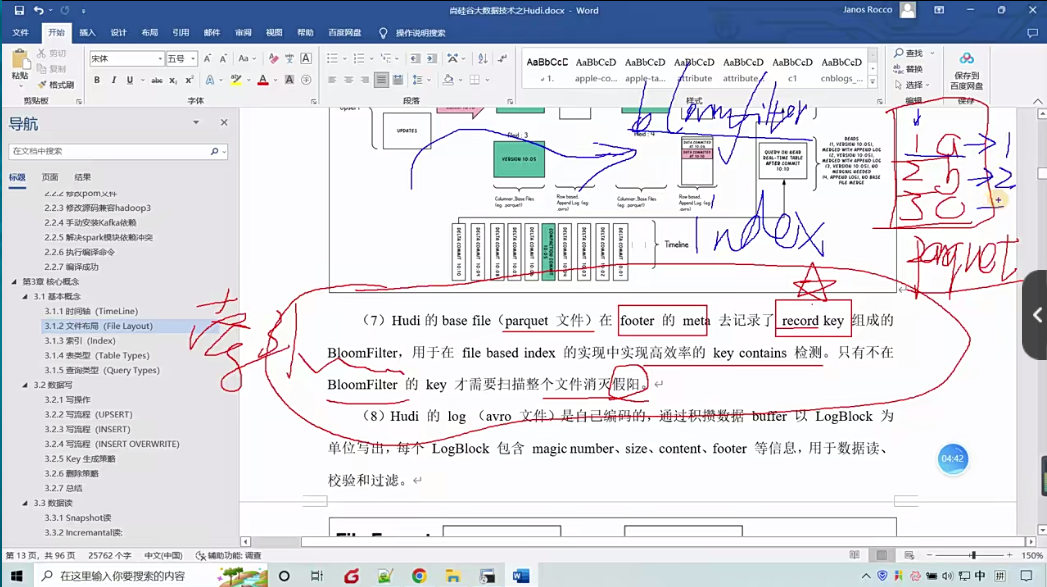 尚硅谷大数据技术之Hudi.docx - Word
Janos Rocco
文件 开始 插入 设计 布局 引用 邮件 审阅 视图 帮助 百度网盘 操作说明搜索
剪切
复制
格式刷
粘贴
宋体 五号
AaBbCcD AaBbCcD AaBbCcD AaBbCcD AaBbCcD AaBbCcD AaBbCcD
1. apple-co... apple-ta... attribute attribute... c1 cnblogs_...
查找
替换
选择
保存到
百度网盘
剪贴板 字体 段落 样式 编辑 保存
导航
在文档中搜索
标题 页面 结果
2.2.2 修改pom文件
2.2.3 修改源码兼容hadoop3
2.2.4 手动安装Kafka依赖
2.2.5 解决spark模块依赖冲突
2.2.6 执行编译命令
2.2.7 编译成功
第3章 核心概念
3.1 基本概念
3.1.1 时间轴（TimeLine）
3.1.2 文件布局（File Layout）
3.1.3 索引（Index）
3.1.4 表类型（Table Types）
3.1.5 查询类型（Query Types）
3.2 数据写
3.2.1 写操作
3.2.2 写流程（UPSERT）
3.2.3 写流程（INSERT）
3.2.4 写流程（INSERT OVERWRITE）
3.2.5 Key 生成策略
3.2.6 删除策略
3.2.7 总结
3.3 数据读
3.3.1 Snapshot读
3.3.2 Incremantal读:
UPDATES
VERSION 10:05
QUERY ON NEAR
REAL-TIME TABLE
AFTER COMMIT
10:10
Columnar, Base Files
(eg: parquet)
Row based,
Append Log (eg: avro)
Columnar, Base Files
(eg: parquet)
Row based,
Append Log (eg: avro)
Timeline
bloomfilter
Index
1 a → 1
2 b → 2
3 c
parquet
（7）Hudi 的 base file（parquet 文件）在 footer 的 meta 去记录了 record key 组成的
BloomFilter，用于在 file based index 的实现中实现高效率的 key contains 检测。只有不在
BloomFilter 的 key 才需要扫描整个文件消灭假阳。
（8）Hudi 的 log （avro 文件）是自己编码的，通过积攒数据 buffer 以 LogBlock 为
单位写出，每个 LogBlock 包含 magic number、size、content、footer 等信息，用于数据读、
校验和过滤。
04:42
第 13 页，共 96 页 25762 个字 中文(中国) 辅助功能: 调查 150%
在这里输入你要搜索的内容 中 拼